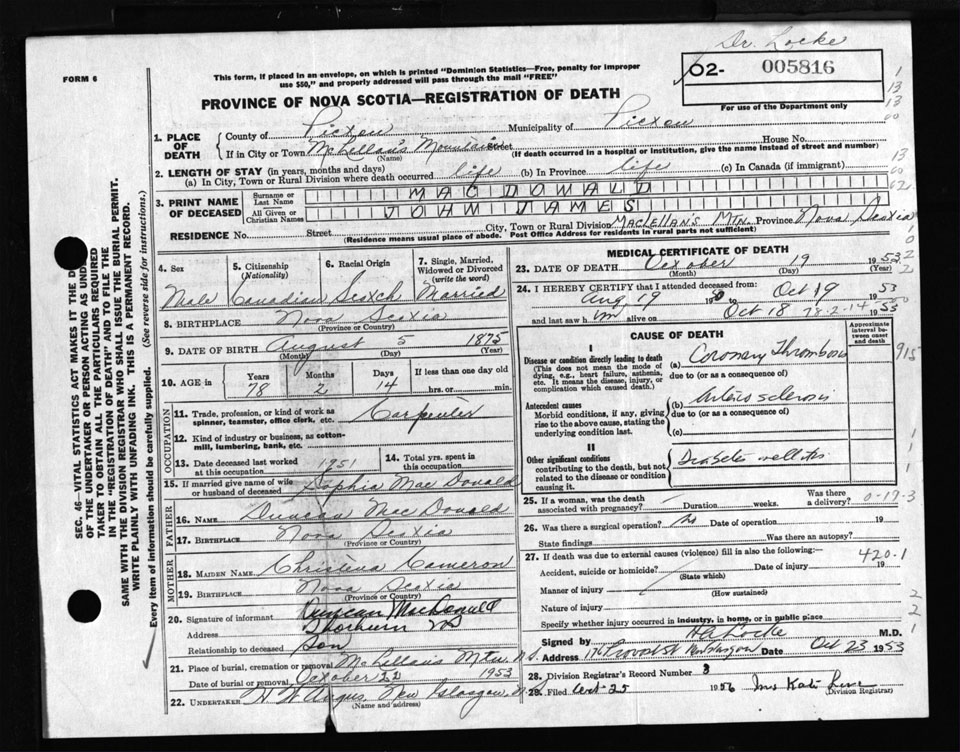 Dr. Locke
FORM 6
This form, if placed in an envelope, on which is printed "Dominion Statistics—Free, penalty for improper
use $50," and properly addressed will pass through the mail "FREE"
02- 005816
For use of the Department only
PROVINCE OF NOVA SCOTIA—REGISTRATION OF DEATH
1. PLACE OF DEATH
County of Pictou Municipality of Pictou
If in City or Town McLellan's Mountain Street House No.
(Name) (If death occurred in a hospital or institution, give the name instead of street and number)
2. LENGTH OF STAY (in years, months and days)
(a) In City, Town or Rural Division where death occurred life (b) In Province life (c) In Canada (if immigrant)
3. PRINT NAME OF DECEASED
Surname or Last Name MAC DONALD
All Given or Christian Names JOHN JAMES
RESIDENCE No. Street City, Town or Rural Division MACLELLAN'S MTN. Province Nova Scotia
(Residence means usual place of abode. Post Office Address for residents in rural parts not sufficient)
4. Sex
Male
5. Citizenship
(Nationality)
Canadian
6. Racial Origin
Scotch
7. Single, Married, Widowed or Divorced
(write the word)
Married
8. BIRTHPLACE Nova Scotia
(Province or Country)
9. DATE OF BIRTH August 5 1875
(Month) (Day) (Year)
10. AGE in Years Months Days If less than one day old
78 2 14 hrs. or min.
OCCUPATION
11. Trade, profession, or kind of work as
spinner, teamster, office clerk, etc. Carpenter
12. Kind of industry or business, as cotton-
mill, lumbering, bank, etc.
13. Date deceased last worked
at this occupation 1951
14. Total yrs. spent in
this occupation
15. If married give name of wife
or husband of deceased Sophia Mac Donald
FATHER
16. NAME Duncan Mac Donald
17. BIRTHPLACE Nova Scotia
(Province or Country)
MOTHER
18. MAIDEN NAME Christena Cameron
19. BIRTHPLACE Nova Scotia
(Province or Country)
20. Signature of informant Duncan MacDonald
Address Thorburn NS
Relationship to deceased Son
21. Place of burial, cremation or removal McLellan's Mtn. N.S.
Date of burial or removal October 22 1953
22. UNDERTAKER H. W. Angus, New Glasgow, N.S.
(Name and address)
MEDICAL CERTIFICATE OF DEATH
23. DATE OF DEATH October 19 1953
(Month) (Day) (Year)
24. I HEREBY CERTIFY that I attended deceased from:
Aug 19 to Oct 19 53
and last saw him alive on Oct 18 1953
78-2-14
CAUSE OF DEATH
Approximate interval between onset and death
I
Disease or condition directly leading to death
(This does not mean the mode of
dying, e.g., heart failure, asthenia,
etc. It means the disease, injury, or
complication which caused death.)
(a) Coronary Thrombosis
due to (or as a consequence of)
Antecedent causes
Morbid conditions, if any, giving
rise to the above cause, stating the
underlying condition last.
(b) Arteriosclerosis
due to (or as a consequence of)
(c)
II
Other significant conditions
contributing to the death, but not
related to the disease or condition
causing it.
Diabetes mellitus
25. If a woman, was the death
associated with pregnancy? Duration weeks. Was there a delivery?
0-17-3
26. Was there a surgical operation? No Date of operation 19
State findings Was there an autopsy?
27. If death was due to external causes (violence) fill in also the following:—
420-1
Accident, suicide or homicide? Date of injury 19
(State which)
Manner of injury
(How sustained)
Nature of injury
Specify whether injury occurred in industry, in home, or in public place
Signed by H A Locke M.D.
Address 176 Provost St New Glasgow Date Oct 23 1953
28. Division Registrar's Record Number 3
29. Filed Oct-25 19 Mrs Kate
(Division Registrar)
SEC. 46—VITAL STATISTICS ACT MAKES IT THE DUTY
OF THE UNDERTAKER OR PERSON ACTING AS UNDER-
TAKER TO OBTAIN ALL THE PARTICULARS REQUIRED
IN THE "REGISTRATION OF DEATH" AND TO FILE THE
SAME WITH THE DIVISION REGISTRAR WHO SHALL ISSUE THE BURIAL PERMIT.
WRITE PLAINLY WITH UNFADING INK. THIS IS A PERMANENT RECORD.
Every item of information should be carefully supplied. (See reverse side for instructions.)